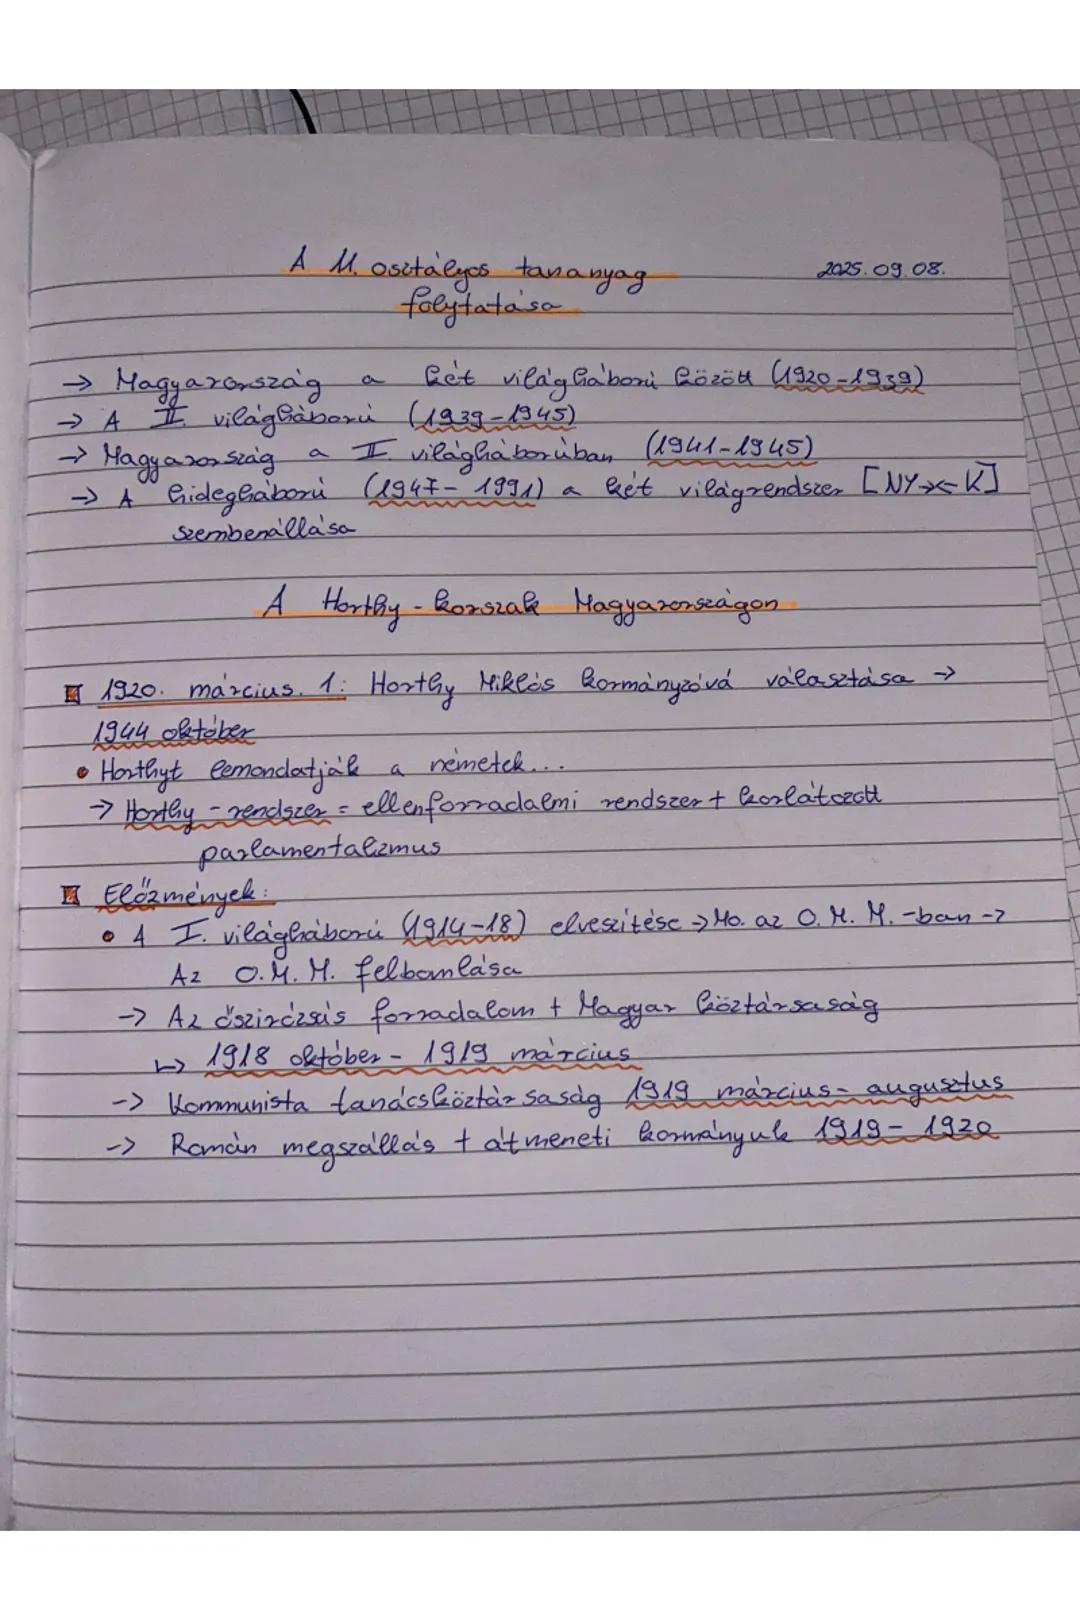 A 11. osztályos tananyag 2025.09.08.
folytatása
→ Magyarország a két világháború között (1920-1939)
→ A II. világháború (1939-1945)
→ Magyarország a II. világháborúban (1941-1945)
→ A hidegháború (1947-1991) a két világrendszer [NY→←K]
szembenállása
A Horthy-korszak Magyarországon
1920. március. 1: Horthy Miklós kormányzóvá választása →
1944 október
• Horthyt lemondatják a németek...
→ Horthy-rendszer = ellenforradalmi rendszer + korlátozott
parlamentalizmus
Előzmények:
• A I. világháború (1914-18) elveszítése → Mo. az O.M.M.-ban →
Az O.M.M. felbomlása
→ Az őszirózsás forradalom + Magyar köztársaság
↳ 1918 október - 1919 március
→ Kommunista tanácsköztársaság 1919 március - augusztus
→ Román megszállás + átmeneti kormányuk 1919-1920